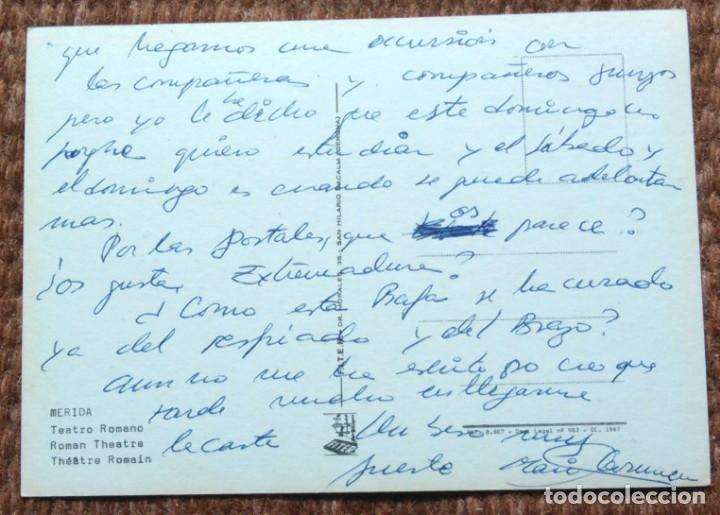 que hagamos una excursión con
las compañeras y compañeros
pero yo le he dicho que este domingo no
porque quiero estudiar y el sábado y
el domingo es cuando se puede adelantar
mas.
Por las postales, que os parece?
¿os gusta Extremadura?
¿Como esta Rafa se ha curado
ya del resfriado y del Brazo?
aun no me ha escrito, creo que
tarde mucho en llegarme
la carta Un beso muy
fuerte Mari Carmen
MERIDA
Teatro Romano
Roman Theatre
Théâtre Romain
SAN HILARIO SACALM (GERONA)
Dep. Legal nº 982 - CC. 1967
todocoleccion.net